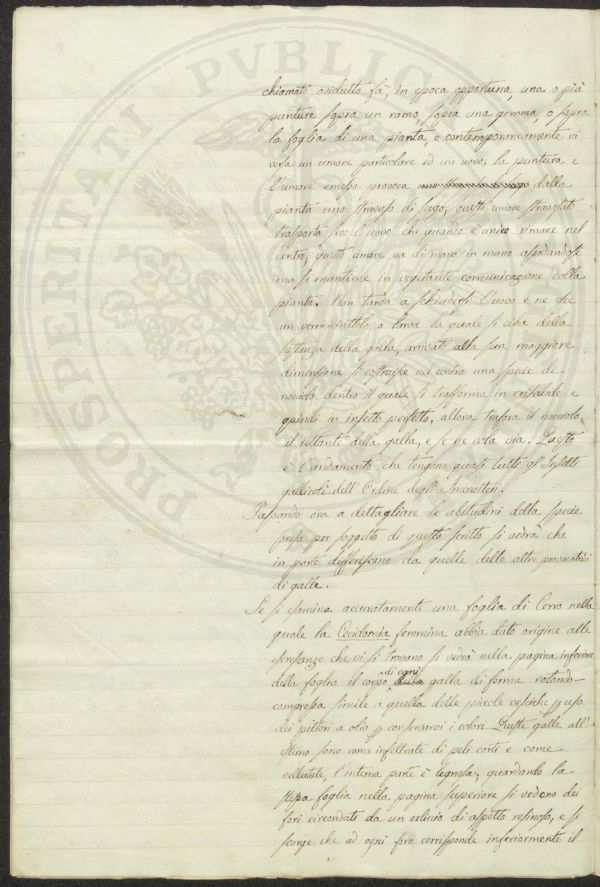 PROSPERITATI PVBLICAE
chiamato ovidutto fà, in epoca opportuna, una o più
punture sopra un ramo, sopra una gemma, o sopra
la foglia di una pianta, e contemporaneamente vi
versa un umore particolare ed un uovo; la puntura e
l'umore emesso provoca dalla
pianta uno stravaso di sugo, questo umore stravasato
trasporta seco l'uovo che quando è unico rimane nel
centro; questo umore va di mano in mano assodandosi
ma si mantiene in vegetante comunicazione colla
pianta. Non tarda a schiudersi l'uovo e ne esce
un vermiciattolo o larva la quale si ciba della
sostanza della galla, arrivata alla sua maggiore
dimensione si costruisce nel centro una specie di
nocciolo dentro il quale si trasforma in crisalide e
quindi in insetto perfetto, allora trafora il nocciolo,
il restante della galla, e se ne vola via. Questo
è l'andamento che tengono quasi tutti gl'Insetti
gallicoli dell'Ordine degl'Imenotteri.
Passando ora a dettagliare le abitudini della specie
presa per soggetto di questo scritto si vedrà che
in parte differiscono da quelle delle altre provocatrici
di galle.
Se si esamina accuratamente una foglia di Cerro nella
quale la Cecidomia femmina abbia dato origine alle
escrescenze che vi si trovano si vedrà nella pagina inferiore
della foglia il corpo di ogni galla di forma rotondo-
compressa simile a quella delle piccole vesciche p uso
dei pittori a olio p conservarvi i colori. Queste galle all'
esterno sono come infeltrate di peli corti e come
vellutate, l'interna parte è legnosa; guardando la
stessa foglia nella pagina superiore si vedono dei
fori circondati da un orliccio di aspetto resinoso, e si
scorge che ad ogni foro corrisponde inferiormente il